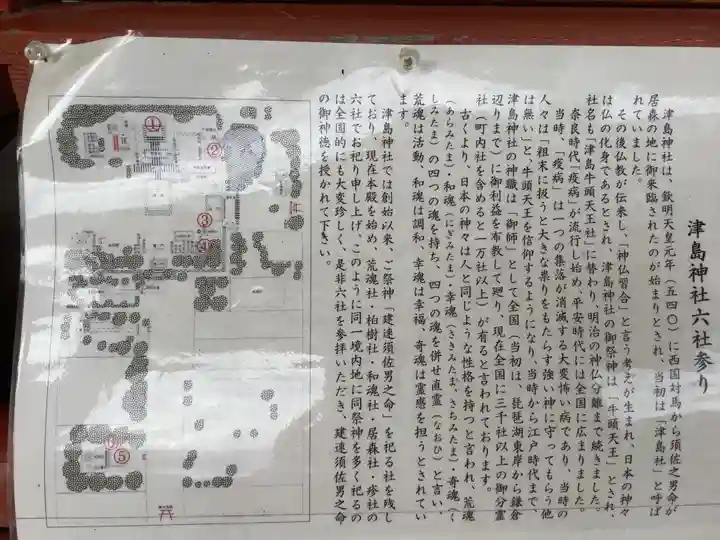 津島神社六社参り
津島神社は、欽明天皇元年（五四〇）に西国対馬から須佐之男命が
居森の地に御来臨されたのが始まりとされ、当初は「津島社」と呼ば
れていました。
その後仏教が伝来し、「神仏習合」と言う考えが生まれ、日本の神々
は仏の化身であるとされ、津島神社の御祭神は「牛頭天王」とされ、
社名も「津島牛頭天王社」に替わり、明治の神仏分離まで続きました。
奈良時代「疫病」が流行し始め、平安時代には全国に広まりました。
当時、「疫病」は一つの集落が消滅する大変怖い病であり、当時の
人々は「粗末に扱うと大きな祟りをもたらす強い神に守ってもらう他
は無い」と、牛頭天王を信仰するようになり、当時から江戸時代まで、
津島神社の神職は「御師」として全国（当初は、琵琶湖東岸から鎌倉
辺りまで）に御利益を布教して廻り、現在全国に三千社以上の御分霊
社（町内社を含めると一万社以上）が有ると言われております。
古くより、日本の神々は人と同じような性格を持つと言われ、荒魂
（あらみたま）・和魂（にぎみたま）・幸魂（さきみたま、さちみたま）・奇魂（く
しみたま）の四つの魂を持ち、四つの魂を併せ直霊（なおひ）と言い、
荒魂は活動、和魂は調和、幸魂は幸福、奇魂は霊感を担うとされてい
ます。
津島神社では創始以来、ご祭神「建速須佐男之命」を祀る社を残し
ており、現在本殿を始め、荒魂社・柏樹社・和魂社・居森社・疹社の
六社でお祀り申し上げ、このように同一境内地に同祭神を多く祀るの
は全国的にも大変珍しく、是非六社を参拝いただき、建速須佐男之命
の御神徳を授かれて下さい。
①
②
③
④
⑤